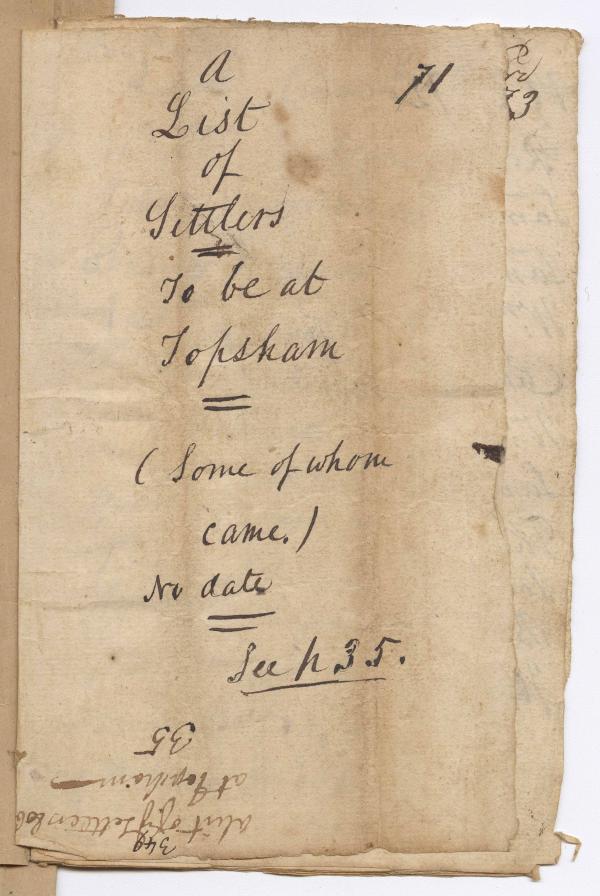 A
71
List
of
Settlers
To be at
Topsham
(Some of whom
came.)
No date
See p 35.
73
35
at Topsham
a List of ye Settlers
349